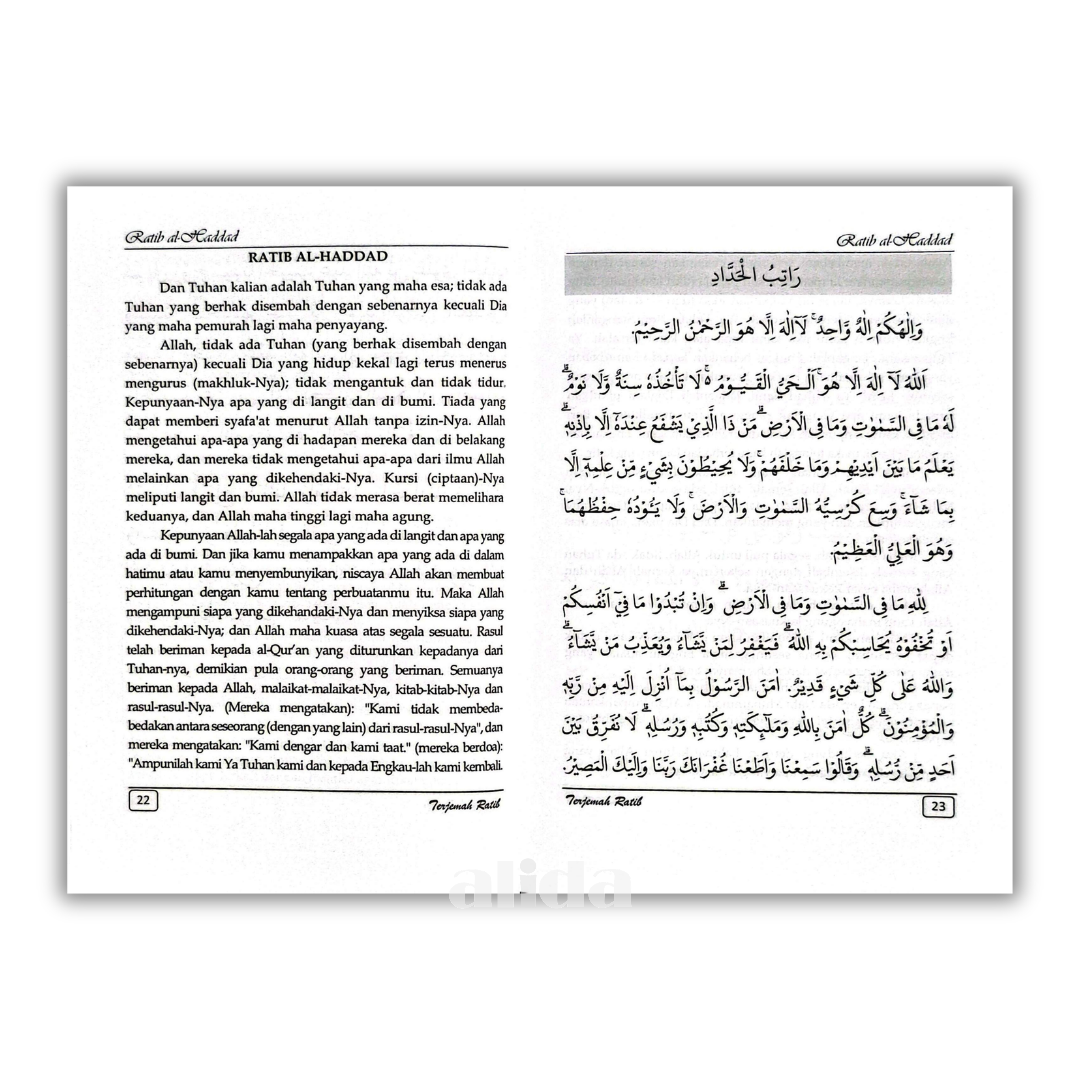 Ratib al-Haddad
RATIB AL-HADDAD
Dan Tuhan kalian adalah Tuhan yang maha esa; tidak ada
Tuhan yang berhak disembah dengan sebenarnya kecuali Dia
yang maha pemurah lagi maha penyayang.
Allah, tidak ada Tuhan (yang berhak disembah dengan
sebenarnya) kecuali Dia yang hidup kekal lagi terus menerus
mengurus (makhluk-Nya); tidak mengantuk dan tidak tidur.
Kepunyaan-Nya apa yang di langit dan di bumi. Tiada yang
dapat memberi syafa'at menurut Allah tanpa izin-Nya. Allah
mengetahui apa-apa yang di hadapan mereka dan di belakang
mereka, dan mereka tidak mengetahui apa-apa dari ilmu Allah
melainkan apa yang dikehendaki-Nya. Kursi (ciptaan)-Nya
meliputi langit dan bumi. Allah tidak merasa berat memelihara
keduanya, dan Allah maha tinggi lagi maha agung.
Kepunyaan Allah-lah segala apa yang ada di langit dan apa yang
ada di bumi. Dan jika kamu menampakkan apa yang ada di dalam
hatimu atau kamu menyembunyikan, niscaya Allah akan membuat
perhitungan dengan kamu tentang perbuatanmu itu. Maka Allah
mengampuni siapa yang dikehandaki-Nya dan menyiksa siapa yang
dikehendaki-Nya; dan Allah maha kuasa atas segala sesuatu. Rasul
telah beriman kepada al-Qur'an yang diturunkan kepadanya dari
Tuhan-nya, demikian pula orang-orang yang beriman. Semuanya
beriman kepada Allah, malaikat-malaikat-Nya, kitab-kitab-Nya dan
rasul-rasul-Nya. (Mereka mengatakan): "Kami tidak membeda-
bedakan antara seseorang (dengan yang lain) dari rasul-rasul-Nya", dan
mereka mengatakan: "Kami dengar dan kami taat." (mereka berdoa):
"Ampunilah kami Ya Tuhan kami dan kepada Engkau-lah kami kembali.
22
Terjemah Ratib
Ratib al-Haddad
رَاتِبُ الْحَدَّادِ
وَاِلٰهُكُمْ اِلٰهٌ وَّاحِدٌ ۚ لَآاِلٰهَ اِلَّا هُوَ الرَّحْمٰنُ الرَّحِيْمُ.
اَللهُ لَآ اِلٰهَ اِلَّا هُوَ ۚ اَلْحَيُّ الْقَيُّوْمُ ە ۚ لَا تَأْخُذُهٗ سِنَةٌ وَّلَا نَوْمٌ ۗ
لَهٗ مَا فِى السَّمٰوٰتِ وَمَا فِى الْاَرْضِ ۗ مَنْ ذَا الَّذِيْ يَشْفَعُ عِنْدَهٗٓ اِلَّا بِاِذْنِهٖ ۗ
يَعْلَمُ مَا بَيْنَ اَيْدِيْهِمْ وَمَا خَلْفَهُمْ ۚ وَلَا يُحِيْطُوْنَ بِشَيْءٍ مِّنْ عِلْمِهٖٓ اِلَّا
بِمَا شَآءَ ۚ وَسِعَ كُرْسِيُّهُ السَّمٰوٰتِ وَالْاَرْضَ ۚ وَلَا يَـُٔوْدُهٗ حِفْظُهُمَا ۚ
وَهُوَ الْعَلِيُّ الْعَظِيْمُ.
لِلّٰهِ مَا فِى السَّمٰوٰتِ وَمَا فِى الْاَرْضِ ۗ وَاِنْ تُبْدُوْا مَا فِيْٓ اَنْفُسِكُمْ
اَوْ تُخْفُوْهُ يُحَاسِبْكُمْ بِهِ اللهُ ۗ فَيَغْفِرُ لِمَنْ يَّشَآءُ وَيُعَذِّبُ مَنْ يَّشَآءُ ۗ
وَاللهُ عَلٰى كُلِّ شَيْءٍ قَدِيْرٌ. اٰمَنَ الرَّسُوْلُ بِمَآ اُنْزِلَ اِلَيْهِ مِنْ رَّبِّهٖ
وَالْمُؤْمِنُوْنَ ۗ كُلٌّ اٰمَنَ بِاللهِ وَمَلٰٓئِكَتِهٖ وَكُتُبِهٖ وَرُسُلِهٖ ۗ لَا نُفَرِّقُ بَيْنَ
اَحَدٍ مِّنْ رُّسُلِهٖ ۗ وَقَالُوْا سَمِعْنَا وَاَطَعْنَا غُفْرَانَكَ رَبَّنَا وَاِلَيْكَ الْمَصِيْرُ.
Terjemah Ratib
23
alida